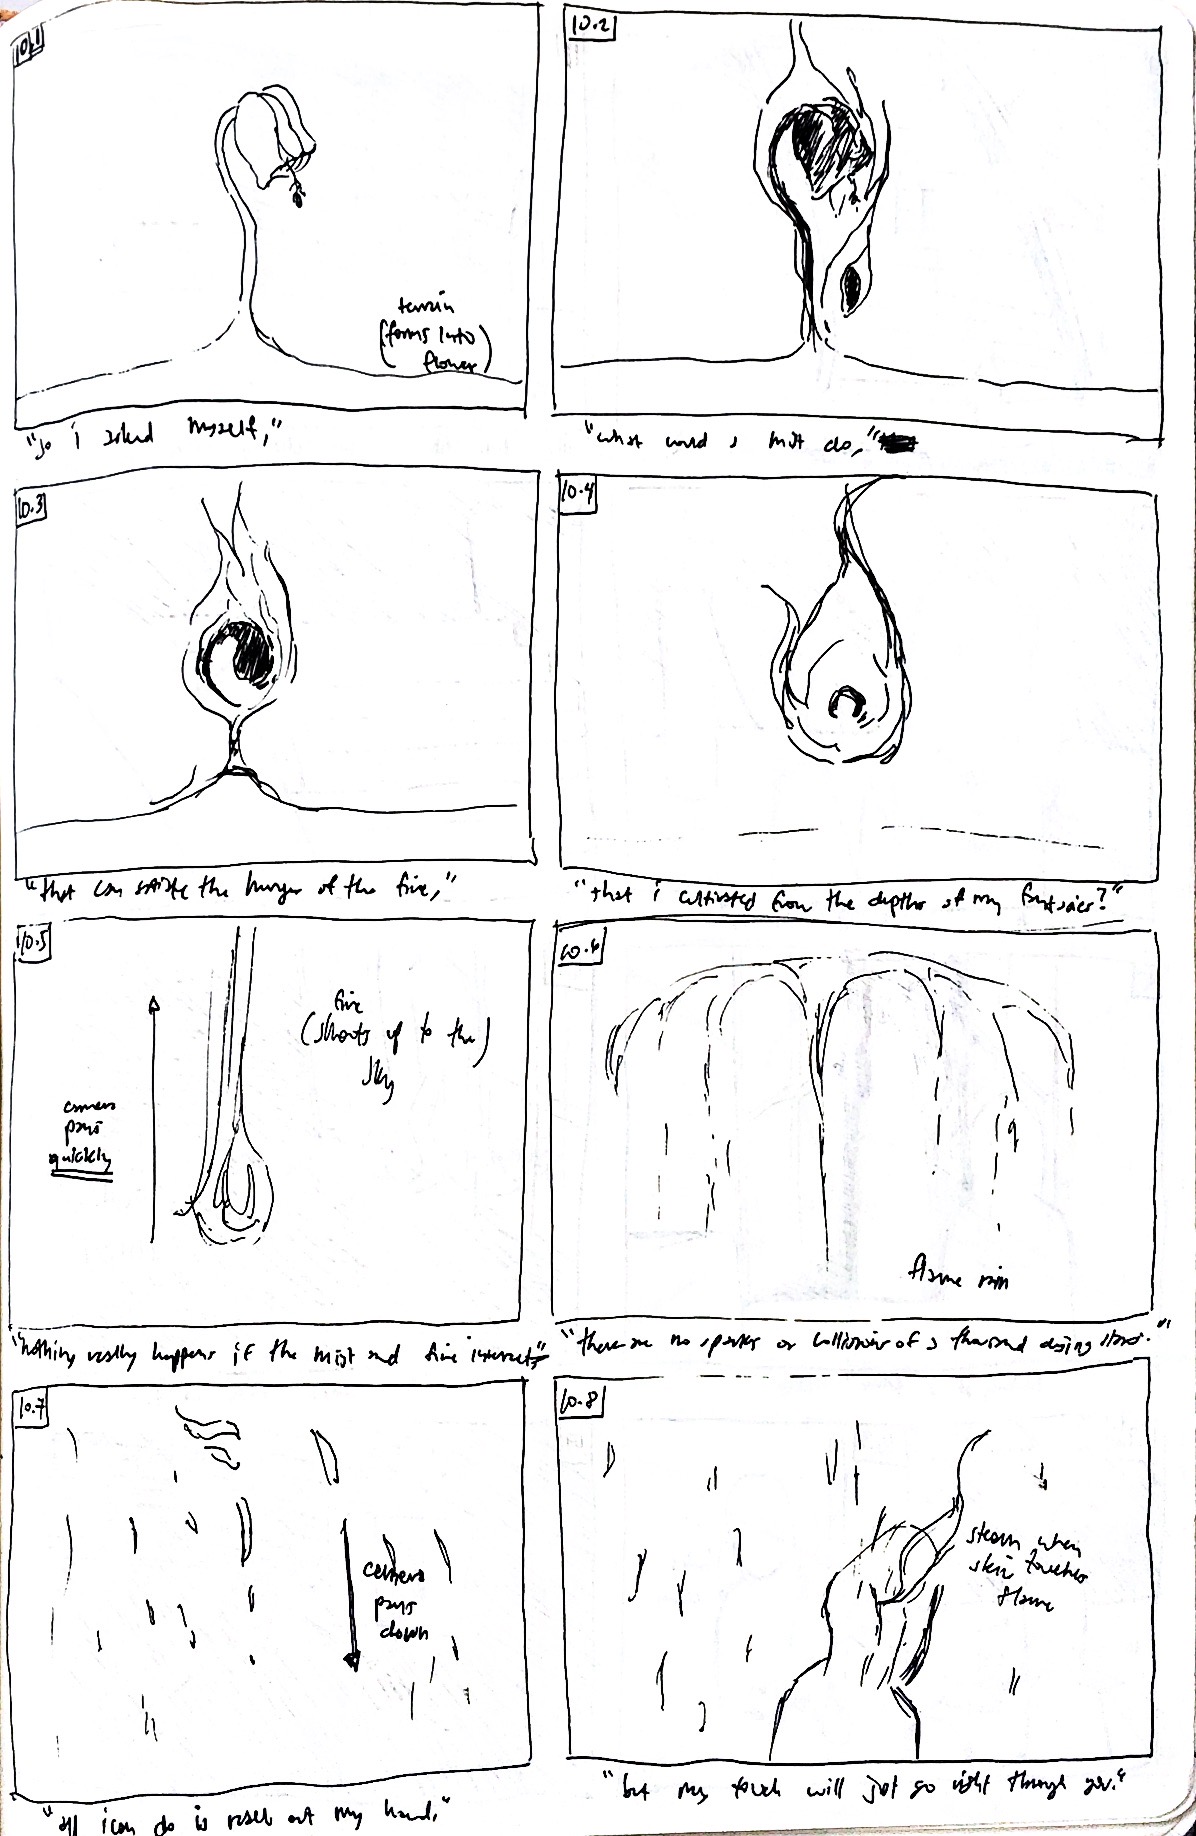 10.1
terrain
(forms into)
flower
"so i asked myself,"
10.2
"what would a mist do,"
10.3
"that can satiate the hunger of the fire,"
10.4
"that i cultivated from the depths of my fantasies?"
10.5
camera
pans
quickly
fire
(shoots up to the)
sky
"nothing really happens if the mist and fire intersects"
10.6
flame rain
"there are no sparks or collisions of a thousand dying stars."
10.7
camera
pans
down
"all i can do is reach out my hand,"
10.8
steam when
skin touches
flame
"but my touch will just go right through you."